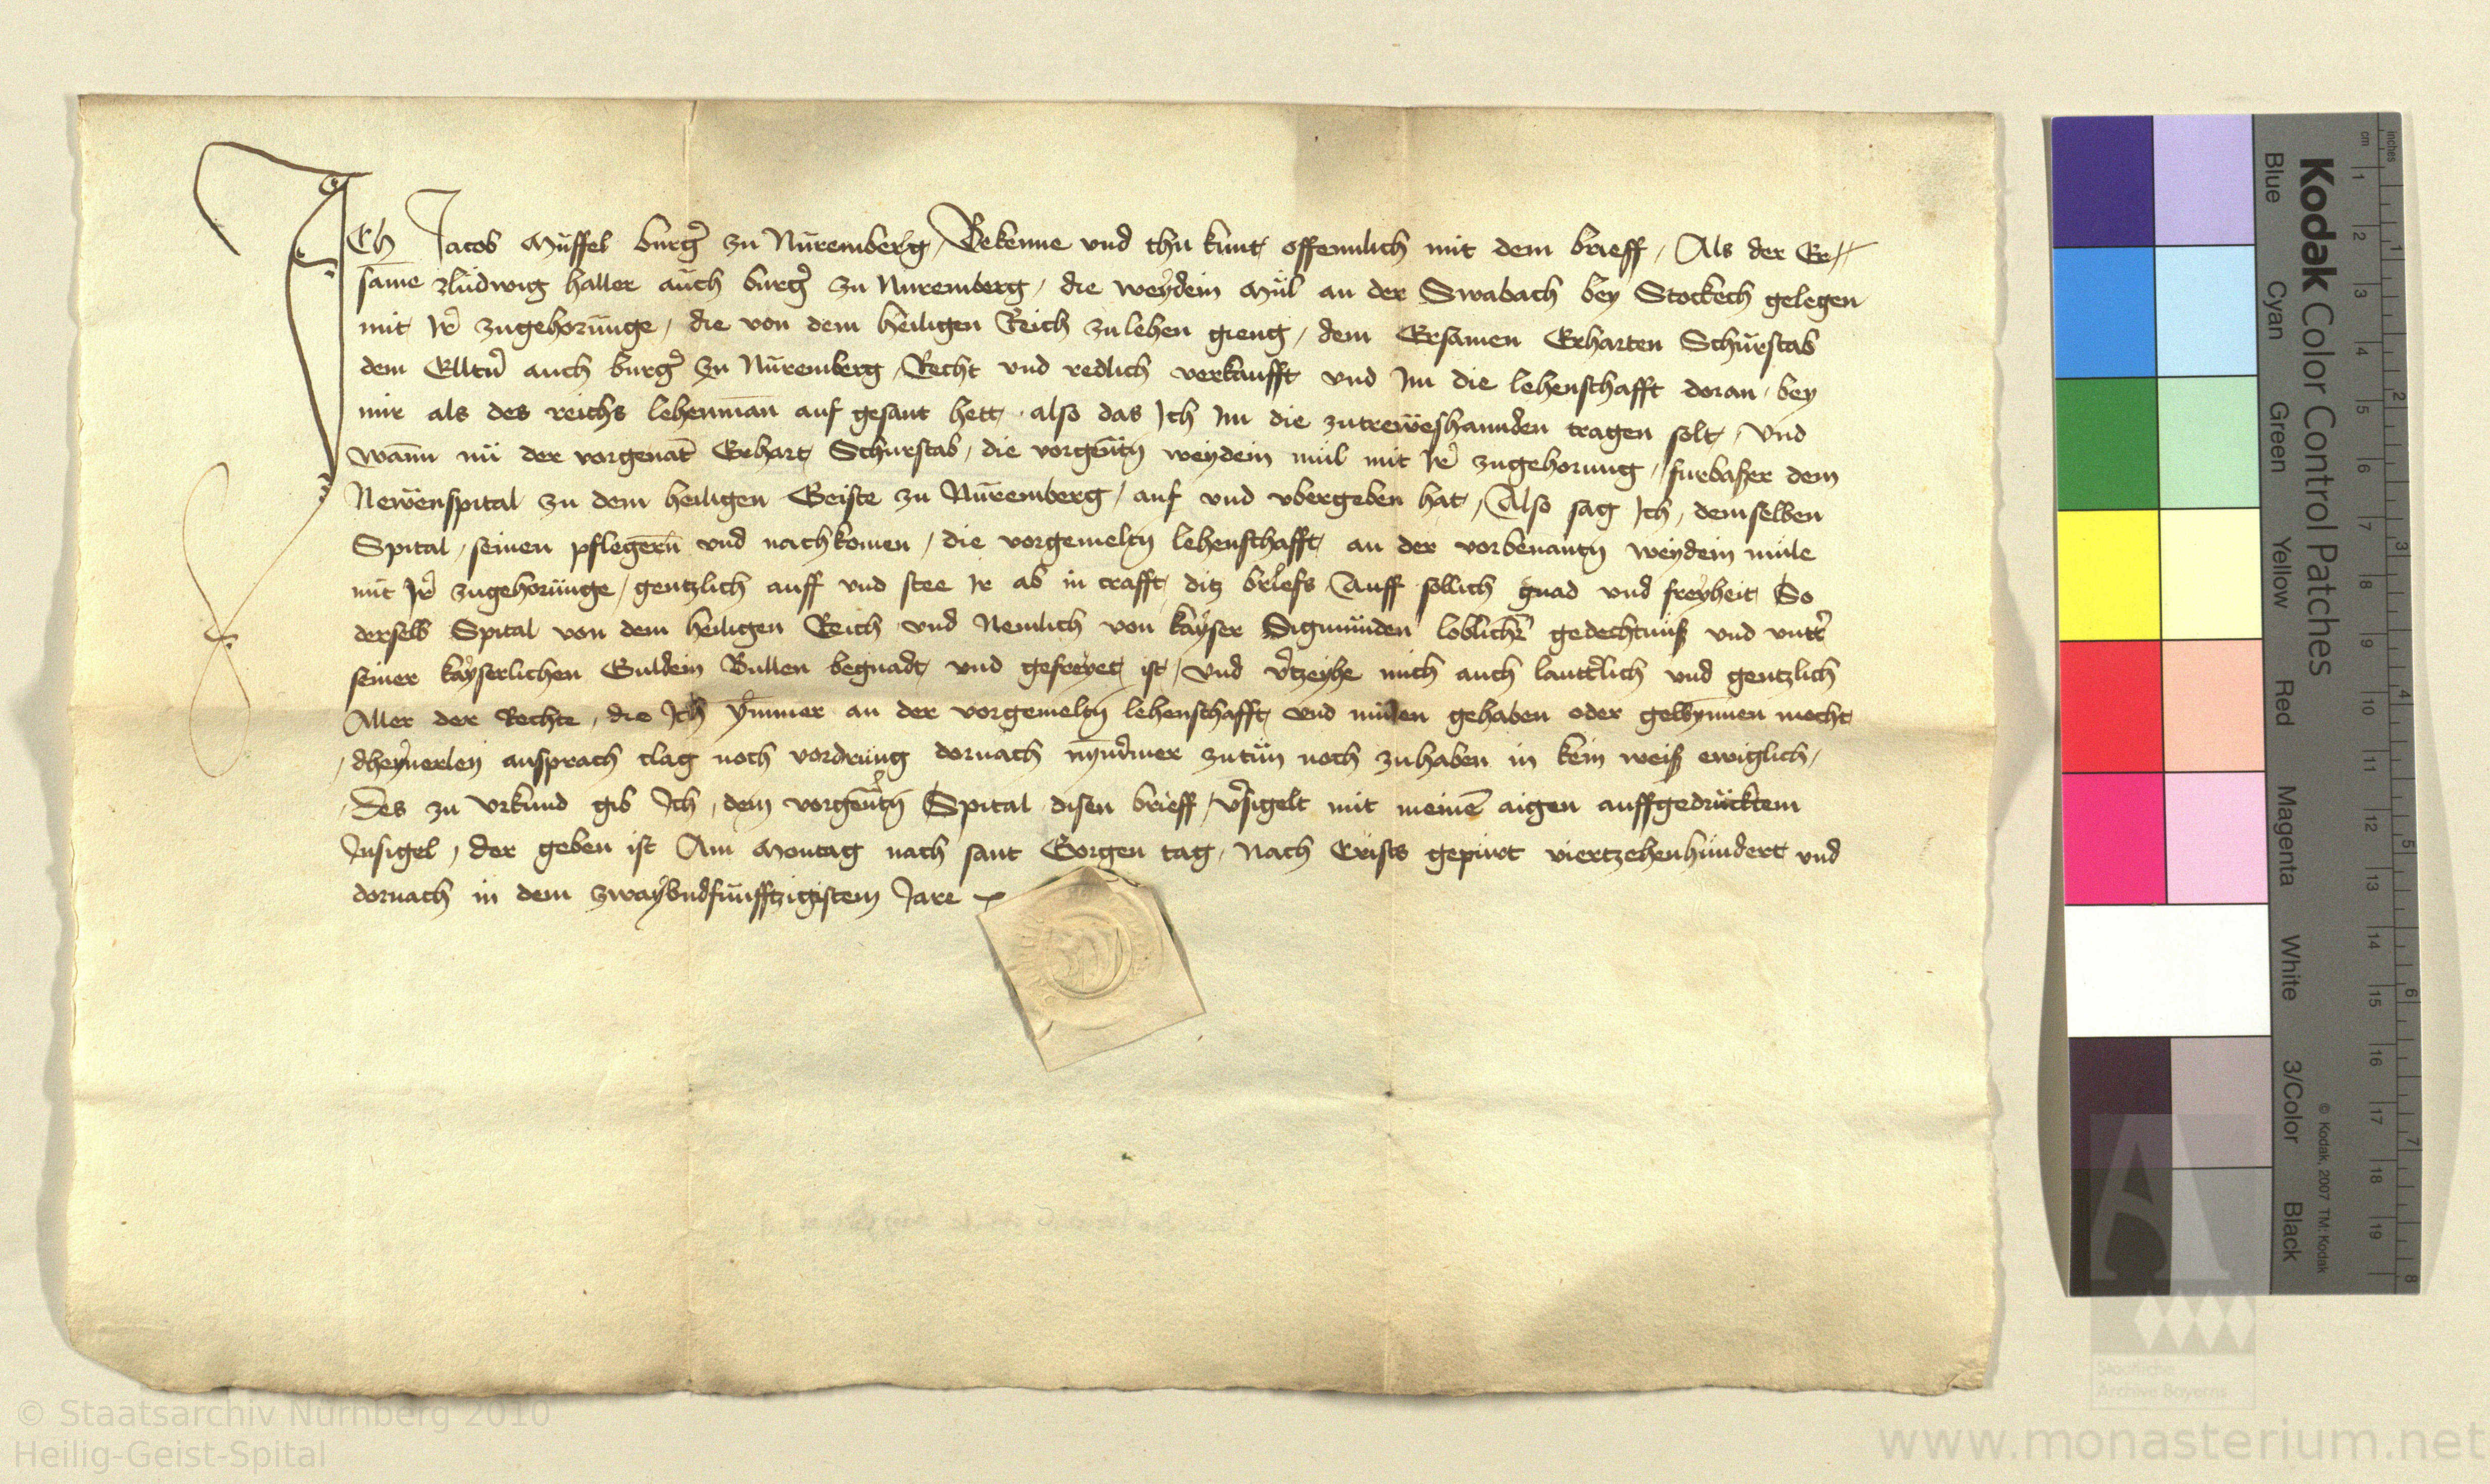 ICh Jacob Muffel burgr zu Nuremberg / Bekenne vnd thu kunt offennlich mit dem brieff / Als der Er//
same Ludwig haller auch burgr zu Nuremberg / die weydein Mül an der Swabach bey Stockech gelegen
mit Jrr zugehorunge / die von dem heiligen Reich zu lehen gieng / dem Ersamen Erharten Schürstab
dem Elltrn auch burgr zu Nuremberg / Recht vnd redlich verkaufft vnd Im die lehenschafft doran / bey
mir als des reichs lehenman auf gesant hett / also das Ich Im die zutreweshannden tragen solt / Vnd
wann nü der vorgenant Erhart Schurstab / die vorgentn weydein mül mit Jrr zugehorung / furbaßer dem
Newenspital zu dem heiligen Geiste zu Nuremberg / auf vnd vbergeben hat / Also sag Ich / demselben
Spital / seinen pflegern vnd nachkomen / die vorgemeltn lehenschafft an der vorbenantn weydein müle
mit Jrr zugehorünge / gentzlich auff vnd stee ir ab in crafft ditz briefs Auff sollich gnad vnd freyheit So
derselb Spital von dem heiligen Reich vnd Nemlich von kayser Sigmunden loblichr gedechtnüß vnd vntr
seiner kayserlichen Guldein Bullen begnadt vnd gefreyet ist / Vnd vrtzeyhe mich auch lauttrlich vnd gentzlich
Aller der Rechte / die Ich ymmer an der vorgemeltn lehenschafft vnd mülen gehaben oder gewynnen mocht
/ dheynerley ansprach clag noch vordrüng dornach nymrmer zutün noch zuhaben in kein weiß ewiglich /
Des zu vrkund gib Ich / dem vorgentn Spital disen brieff / vrsigelt mit meine aigen auffgedrücktem
Insigel / der geben ist Am Montag nach sant Gorgen tag / Nach Crists gepürt viertzehenhündert vnd
dornach in dem zwayvndfunfftzigistem Jare
Kodak Color Control Patches
Blue Cyan Green Yellow Red Magenta White 3/Color Black
cm 1 2 3 4 5 6 7 8 9 10 11 12 13 14 15 16 17 18 19
inches 1 2 3 4 5 6 7 8
© Kodak, 2007 TM: Kodak
Staatliche
Archive Bayerns
© Staatsarchiv Nürnberg 2010
Heilig-Geist-Spital
www.monasterium.net